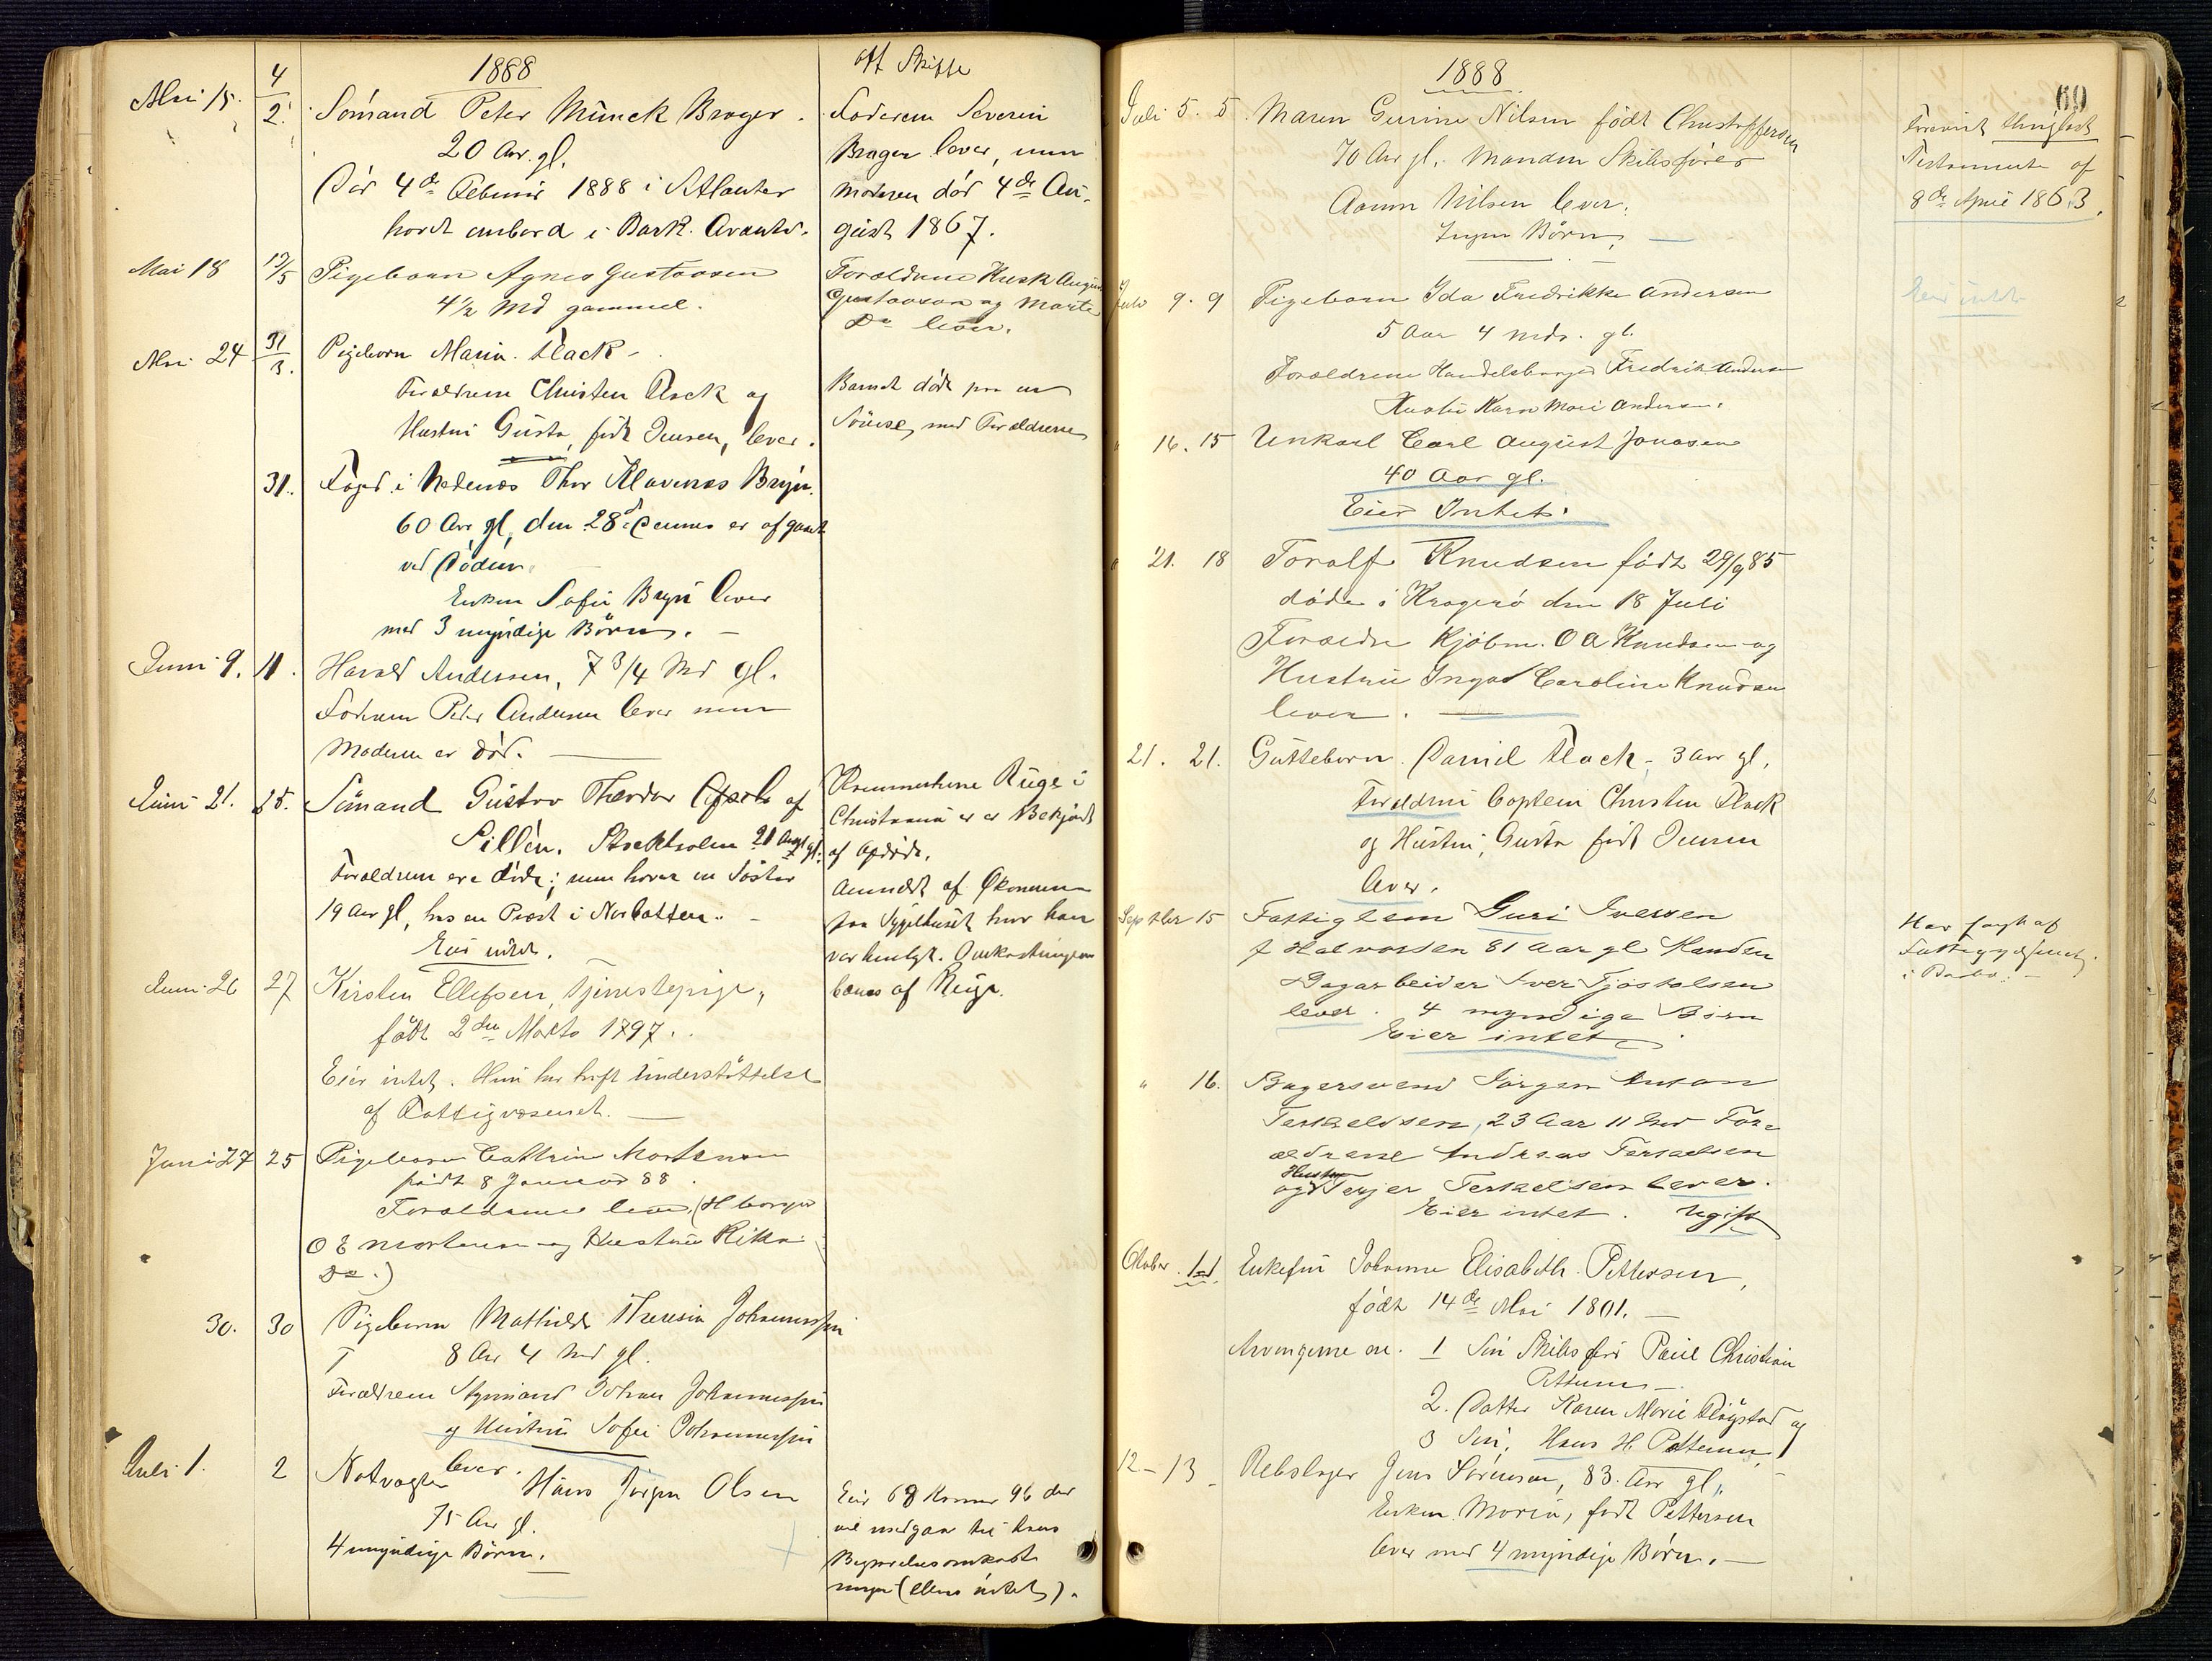 1888
off Skifte
Mai 15. 4/2. Sömand Peter Münck Brager.
20 Aar gl.
Död 4de Februar 1888 i Atlanter
havet ombord i Bark. Avanti.
Faderen Severin
Brager lever, men
moderen död 4de Au-
gust 1867.
Mai 18 12/5 Pigebarn Agnes Gustavsen
4½ Md gammel.
Forældrene Kusk August
Gustavson og Marte
Do lever.
Mai 24 31/3. Pigebarn Maria Flack
Forældrene Christen Flack og
Hustru Gusta, född Jensen, lever.
Barnet döde paa en
Söreise med Forældrene
31. Foged i Nedenæs Thor Klavenæs Bryn.
60 Aar gl, den 28de dennes er afgaaet
ved Döden.
Enken Sofie Bryn lever
med 3 myndige Börn.
Juni 9. 11. Harald Andersen, 7 3/4 Md gl.
Faderen Peder Andersen lever men
Moderen er död.
Juni 21. 25. Sömand Gustav Theodor af
Sillén. Stockholm 21 Aar gl.
Forældrene ere döde; men haver en Söster
19 Aar gl, hos en Præst i Norbotten.
Eier intet.
Ruge i
Christiania er Bekjendt
af afdöde.
Anmeldt af Økonomen
paa Sygehuset hvor han
var henlagt. Omkostningerne
bæres af Ruge.
Juni 26 27 Kirsten Ellefsen, Tjenestepige,
födt 2den Marts 1797.
Eier intet. Hun har havt Understöttelse
af Fattigvæsenet.
Juni 27 25 Pigebarn Cathrine Mortensen
födt 8 Januar 88.
Forældrene lever (H borger
O E Mortensen og Hustru Rikke
Do.)
30. 30 Pigebarn Mathilde Theresia Johannessen
8 Aar 4 Md gl.
Forældrene Styrmand Johan Johannessen
og Hustru Sofie Johannessen
lever.
Juli 1. 2 Natvægter Hans Jörgen Olsen
75 Aar gl.
4 myndige Börn.
Eier 68 Kroner 96 der
vil medgaa til hans
Begravelsesomkost
ninger (ellers intet).
1888
69
Juli 5. 5. Maren Gurine Nilsen födt Christoffersen
70 Aar gl. Manden Skibsförer
Aanon Nilsen lever.
Ingen Börn
Forevist thinglæst
Testamente af
8de April 1863.
Juli 9. 9 Pigebarn Ida Fredrikke Andersen
5 Aar 4 Mdr. gl.
Forældrene Handelsborger Fredrik Andersen
Hustru Karen Marie Andersen.
Eier intet
" 16. 15 Unkarl Carl August Jonasen
40 Aar gl.
Eier Intet.
" 21. 18 Toralf Knudsen födt 29/9 85
döde i Kragerö den 18 Juli
Forældre Kjöbm. O A Knudsen og
Hustrue Inga Caroline Knudsen
lever.
21. 21. Gutteborn Daniel Flack, 3 Aar gl.
Forældrene Captein Christen Flack
og Hustru, Gusta födt Jensen
lever.
Septbr 15 Fattiglem Guri Iversen
f Halvorsen 81 Aar gl Manden
Dagarbeider Iver Tjostolsen
lever. 4 myndige Börn
Eier intet
Har faaet af
Fattigvæsenet
i Barbo.
" 16. Bagersvend Jörgen Anton
Terkelsen, 23 Aar 11 Md For-
ældrene Andreas Terkelsen
og Hustru Terjer Terkelsen lever.
Eier intet. Ugift
Oktober 1st. Enkefru Johanne Elisabeth Pettersen,
födt 14de Mai 1801.
Arvingerne ere. 1 Sön Skibsförer Paul Christian
Pettersen
2. Datter Karen Marie Flögstad og
3 Sön, Hans H. Pettersen
12 - 13 Rebslager Jens Sörensen, 83 Aar gl,
Enken Maria, födt Pettersen
lever med 4 myndige Börn.